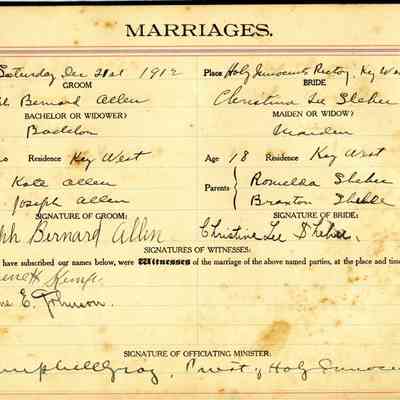 MARRIAGES.
Saturday Dec 21st 1912 Place Holy Innocents Rectory, Key Wes
GROOM BRIDE
ph Bernard Allen Christina Lee Sheher
BACHELOR OR WIDOWER? MAIDEN OR WIDOW?
Bachelor Maiden
Residence Key West Age 18 Residence Key West
Kate Allen Parents Romelda
Joseph Allen Braxton
SIGNATURE OF GROOM: SIGNATURE OF BRIDE:
ph Bernard Allen Christine Lee Sheher
SIGNATURES OF WITNESSES:
have subscribed our names below, were Witnesses of the marriage of the above named parties, at the place and time
Kemp
E. Johnson.
SIGNATURE OF OFFICIATING MINISTER:
mpbell Gray, Priest of Holy Innocen